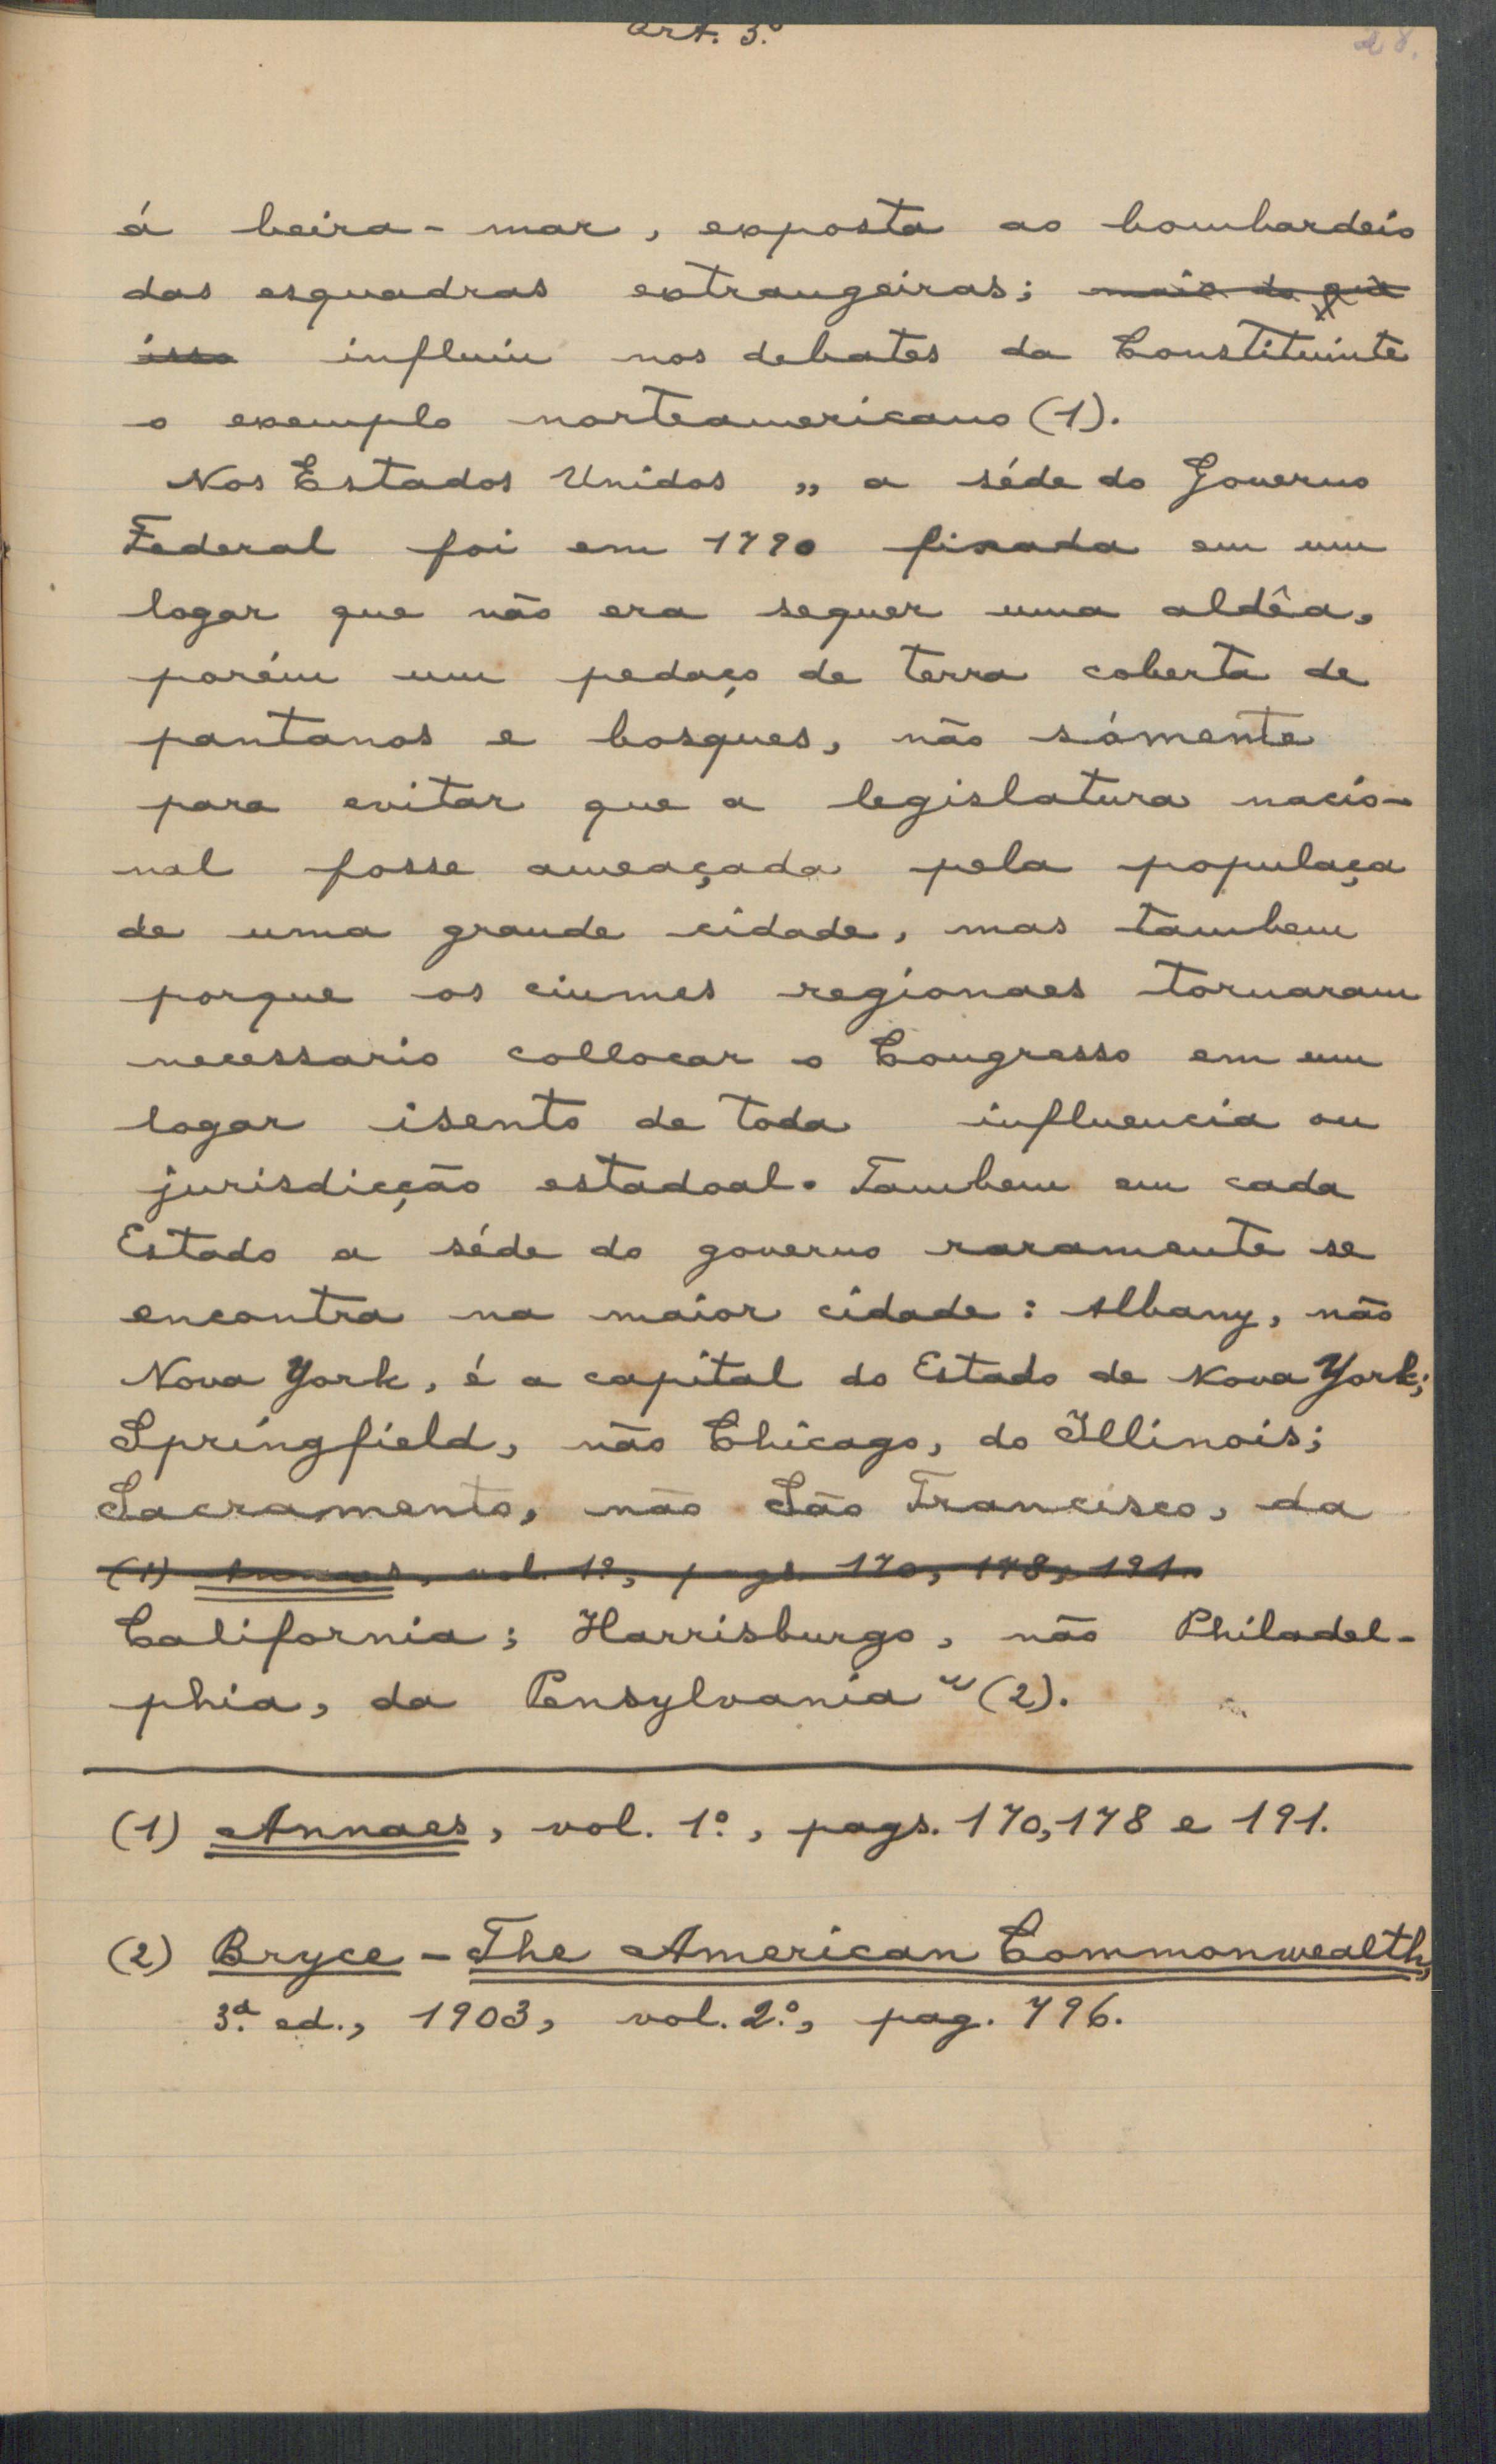 Art. 3.º
28.
á beira-mar, exposta ao bombardeio
das esquadras extrangeiras; mais do que
isso influiu nos debates da Constituinte
o exemplo norteamericano (1).
Nos Estados Unidos „ a séde do Governo
Federal foi em 1790 fixada em um
logar que não era sequer uma aldêa,
porém um pedaço de terra coberta de
pantanos e bosques, não sómente
para evitar que a legislatura nacio-
nal fosse ameaçada pela populaça
de uma grande cidade, mas tambem
porque os ciumes regionaes tornaram
necessario collocar o Congresso em um
logar isento de toda influencia ou
jurisdicção estadoal. Tambem em cada
Estado a séde do governo raramente se
encontra na maior cidade: Albany, não
Nova York, é a capital do Estado de Nova York;
Springfield, não Chicago, do Illinois;
Sacramento, não São Francisco, da
(1) Annaes, vol. 1º, pags. 170, 178, 191.
California; Harrisburgo, não Philadel-
phia, da Pensylvania “ (2).
(1) Annaes, vol. 1º, pags. 170, 178 e 191.
(2) Bryce - The American Commonwealth,
3ª ed., 1903, vol. 2º, pag. 796.